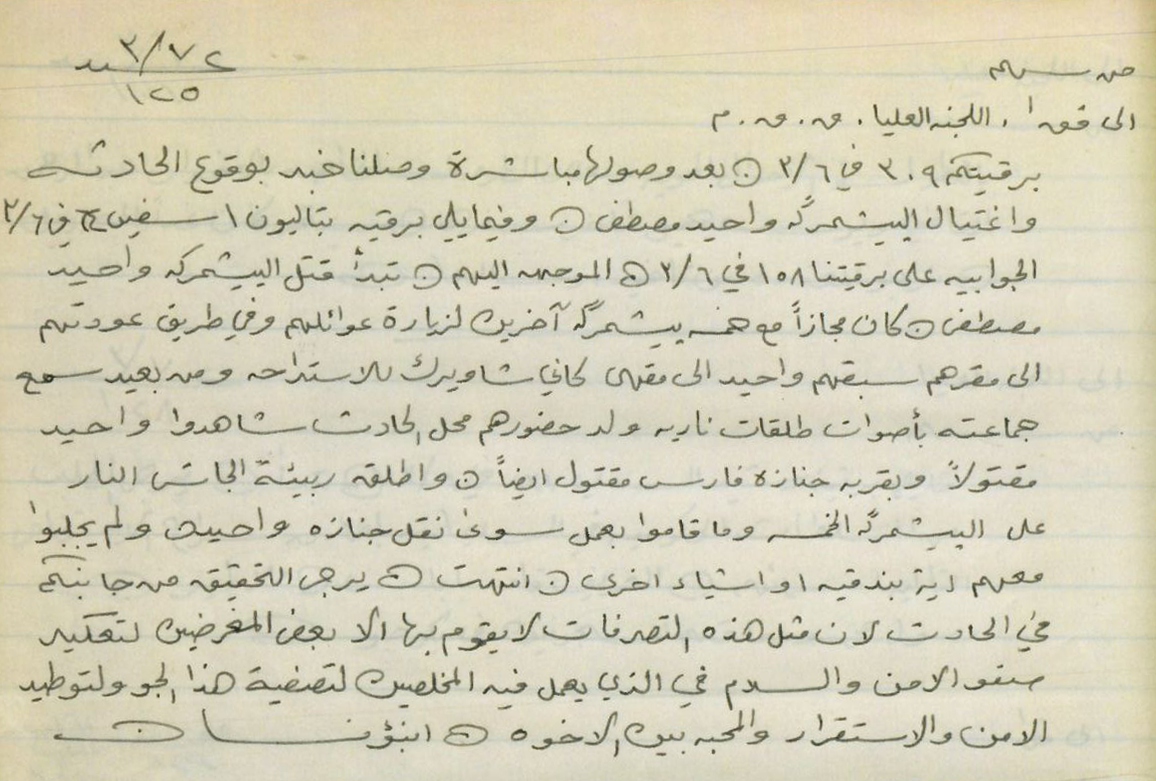 ٣/٧ ٢
١٢٥
من
الى ق ١ . اللجنه العليا . ق . ق . م
برقيتكم ٣٠٩ في ٣/٦ ن بعد وصولها مباشرة وصلنا خبر بوقوع الحادثه
واغتيال البيشمرگه واحيد مصطفى ن وفيما يلي برقيه بتاليون ١ سفين في ٣/٦
الجوابيه على برقيتنا ١٥٨ في ٣/٦ ن الموجهه اليهم ن تبدأ قتل البيشمركه واحيد
مصطفى ن كان مجازاً مع خمسه بيشمرگه آخرين لزيارة عوائلهم وفي طريق عودتهم
الى مقرهم سبقهم واحيد الى مقهى كاني شاويرك للاستراحه ومن بعيد سمع
جماعته بأصوات طلقات ناريه ولد حضورهم محل الحادث شاهدوا واحيد
مقتولاً وبقربه جنازة فارس مقتول ايضاً ن واطلقه ربيئة الجاش النار
على البيشمرگه الخمسه وما قاموا بعمل سوى نقل جنازه واحيد ولم يجلبوا
معهم اية بندقيه او اشياء اخرى ن انتهت ن يرجى التحقيق من جانبكم
في الحادث لان مثل هذه التصرفات لا يقوم بها الا بعض المغرضين لتعكير
صفو الامن والسلام في الذي يعمل فيه المخلصين لتصفية هذا الجو ولتوطيد
الامن والاستقرار والمحبه بين الاخوه ن انبؤنا ن